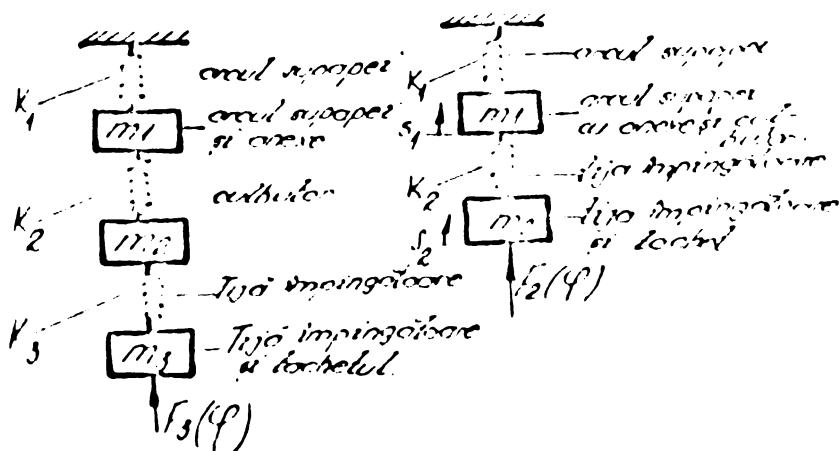 K1
arcul supapei
m1
arcul supapei
si anexe
K2
culbutor
m2
Tijă împingătoare
K3
m3
Tijă împingătoare
si tachetul
F3(φ)
arcul supapei
K1
s1
m1
arcul supapei
cu anexe si
K2
tija împingătoare
s2
tija împingătoare
si tachet
F2(φ)